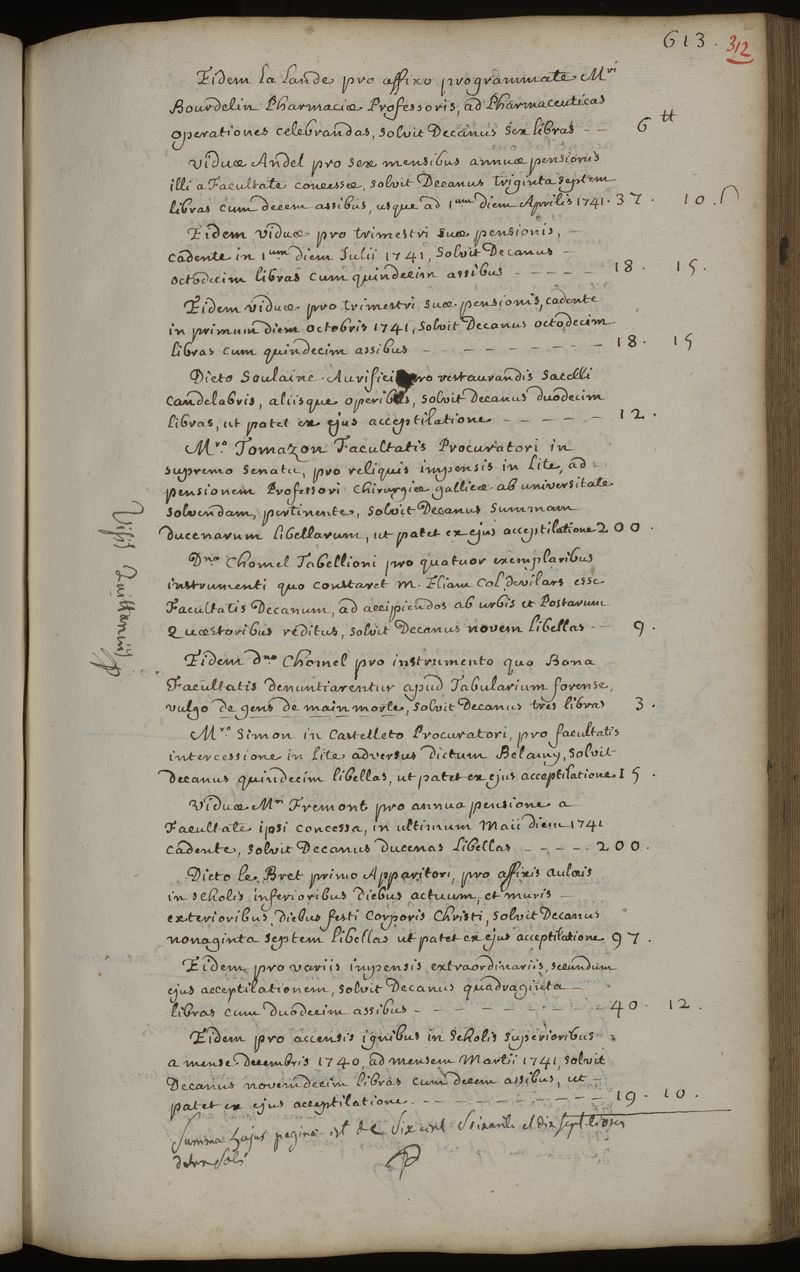 613. 312
Eidem la Lande pro affixo programmate Mri
Bourdelin Pharmaciæ Professoris, ad Pharmaceuticas
operationes celebrandas, solvit Decanus sex libras -- 6 tt
Viduæ Andel pro sex mensibus annuæ pensionis
illi a Facultate concessæ, solvit Decanus triginta septem
libras cum decem assibus, usque ad 1um diem Aprilis 1741. 37. 10. s
Eidem viduæ pro trimestri suæ pensionis, -
cadente in 1um diem Julii 1741, solvit Decanus -
octodecim libras cum quindecim assibus ----- 18. 15.
Eidem viduæ pro trimestri suæ pensionis, cadente
in primum diem octobris 1741, solvit Decanus octodecim
libras cum quindecim assibus -------- 18. 15
Dicto Soulaine Aurifici pro restaurandis Sacelli
candelabris, aliisque operibus, solvit Decanus duodecim
libras, ut patet ex ejus acceptilatione ----- 12.
Mro. Tomazon Facultatis Procuratori in
supremo Senatu, pro reliquis impensis in lite, ad
pensionem Professori Chirurgiæ gallicæ ab universitate
solvendam, pertinente, solvit Decanus summam
ducenarum libellarum, ut patet ex ejus acceptilatione 200.
Dno. Chomel Tabellioni pro quatuor exemplaribus
instrumenti quo constaret M. Eliam Col Devilars esse
Facultatis Decanum, ad accipiendos ab urbis et Postarum
Quæstoribus reditus, solvit Decanus novem libellas -- 9.
Eidem dno. Chomel pro instrumento quo Bona
Facultatis denuntiarentur apud Tabularium forense,
vulgo de gens de main morte, solvit Decanus tres libras 3.
Mro. Simon in Castelleto Procuratori, pro facultatis
intercessione in lite adversus dictum Belamy, solvit
Decanus quindecim libellas, ut patet ex ejus acceptilatione 15.
Viduæ Mri Fremont pro annua pensione a
Facultate ipsi concessa, in ultimum Maii diem 1741
cadente, solvit Decanus ducenas libellas ----- 200.
Dicto le Bret primo Apparitori, pro affixis aulæis
in scholis inferioribus diebus actuum, et muris -
exterioribus, diebus festi Corporis Christi, solvit Decanus
nonaginta septem libellas ut patet ex ejus acceptilatione. 97.
Eidem pro variis impensis extraordinariis, secundum
ejus acceptilationem, solvit Decanus quadraginta -
libras cum duodecim assibus -------- 40. 12.
Eidem pro accensis ignibus in Scholis superioribus
a mense decembris 1740, ad mensem Martii 1741, solvit
Decanus novemdecim libras cum decem assibus, ut -
patet ex ejus acceptilatione. --------- 19. 10.
Summa hujus paginæ est de Six cent Soixante et dix sept livres
deux Sols
Visis Quittantiis